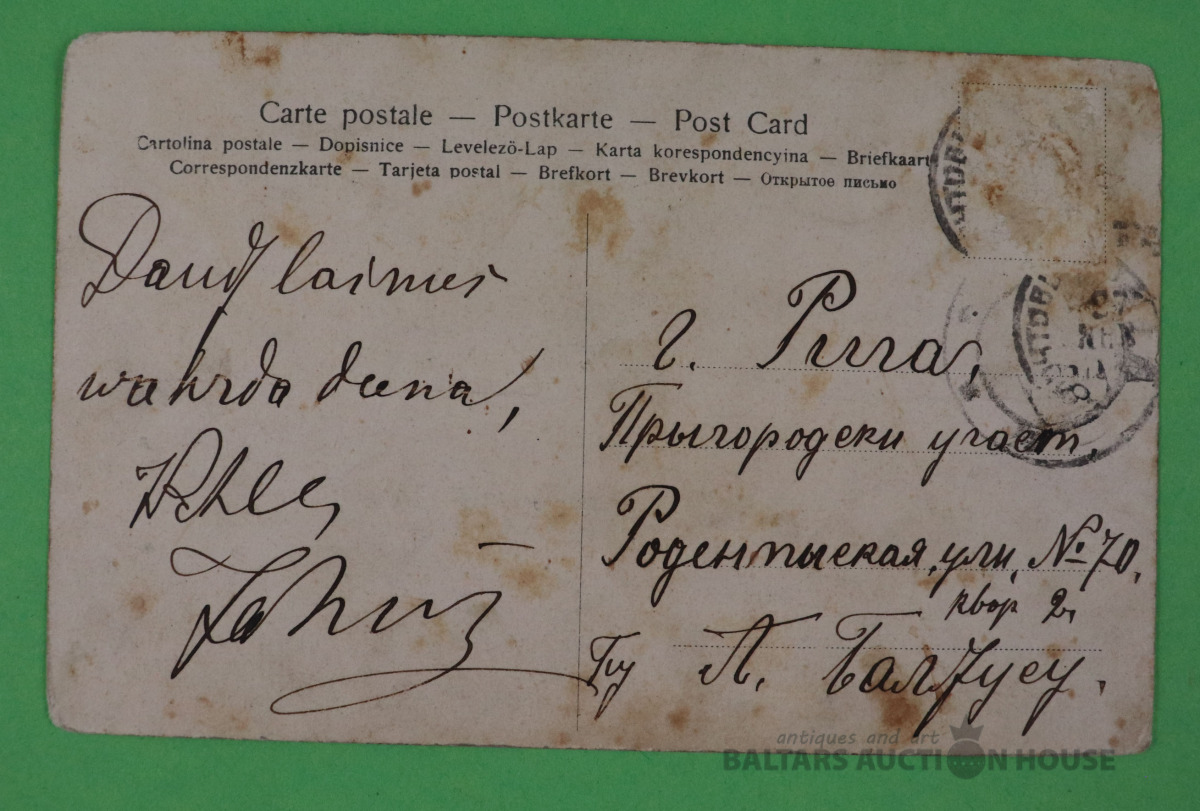 Carte postale — Postkarte — Post Card
Cartolina postale — Dopisnice — Levelezö-Lap — Karta korespondencyjna — Briefkaart
Correspondenzkarte — Tarjeta postal — Brefkort — Brevkort — Открытое письмо
Daudz laimes
wahrda deena,
г. Рига,
Прыгородски участ,
Родентыская ули, № 70,
квар 2,
А.
antiques and art
BALTARS AUCTION HOUSE